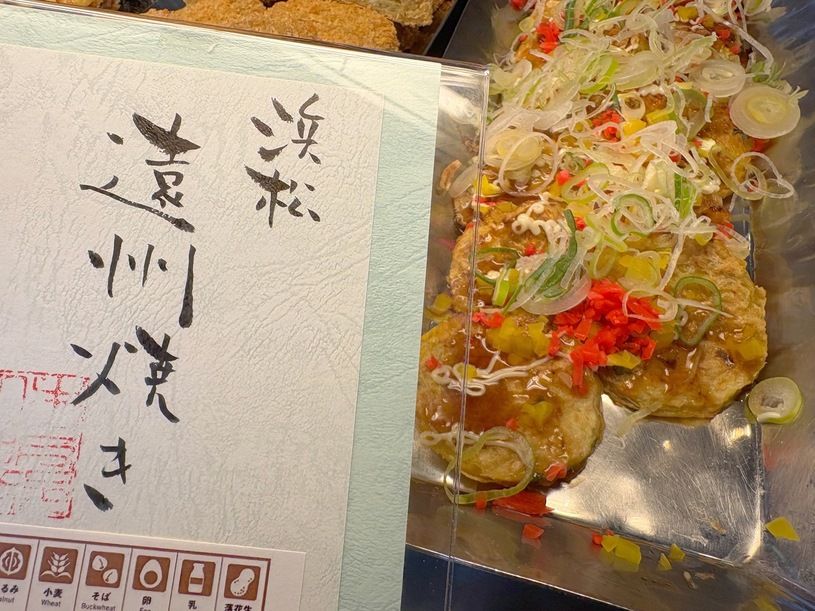 浜松
遠州焼き
小麦
Wheat
そば
Buckwheat
卵
乳
落花生